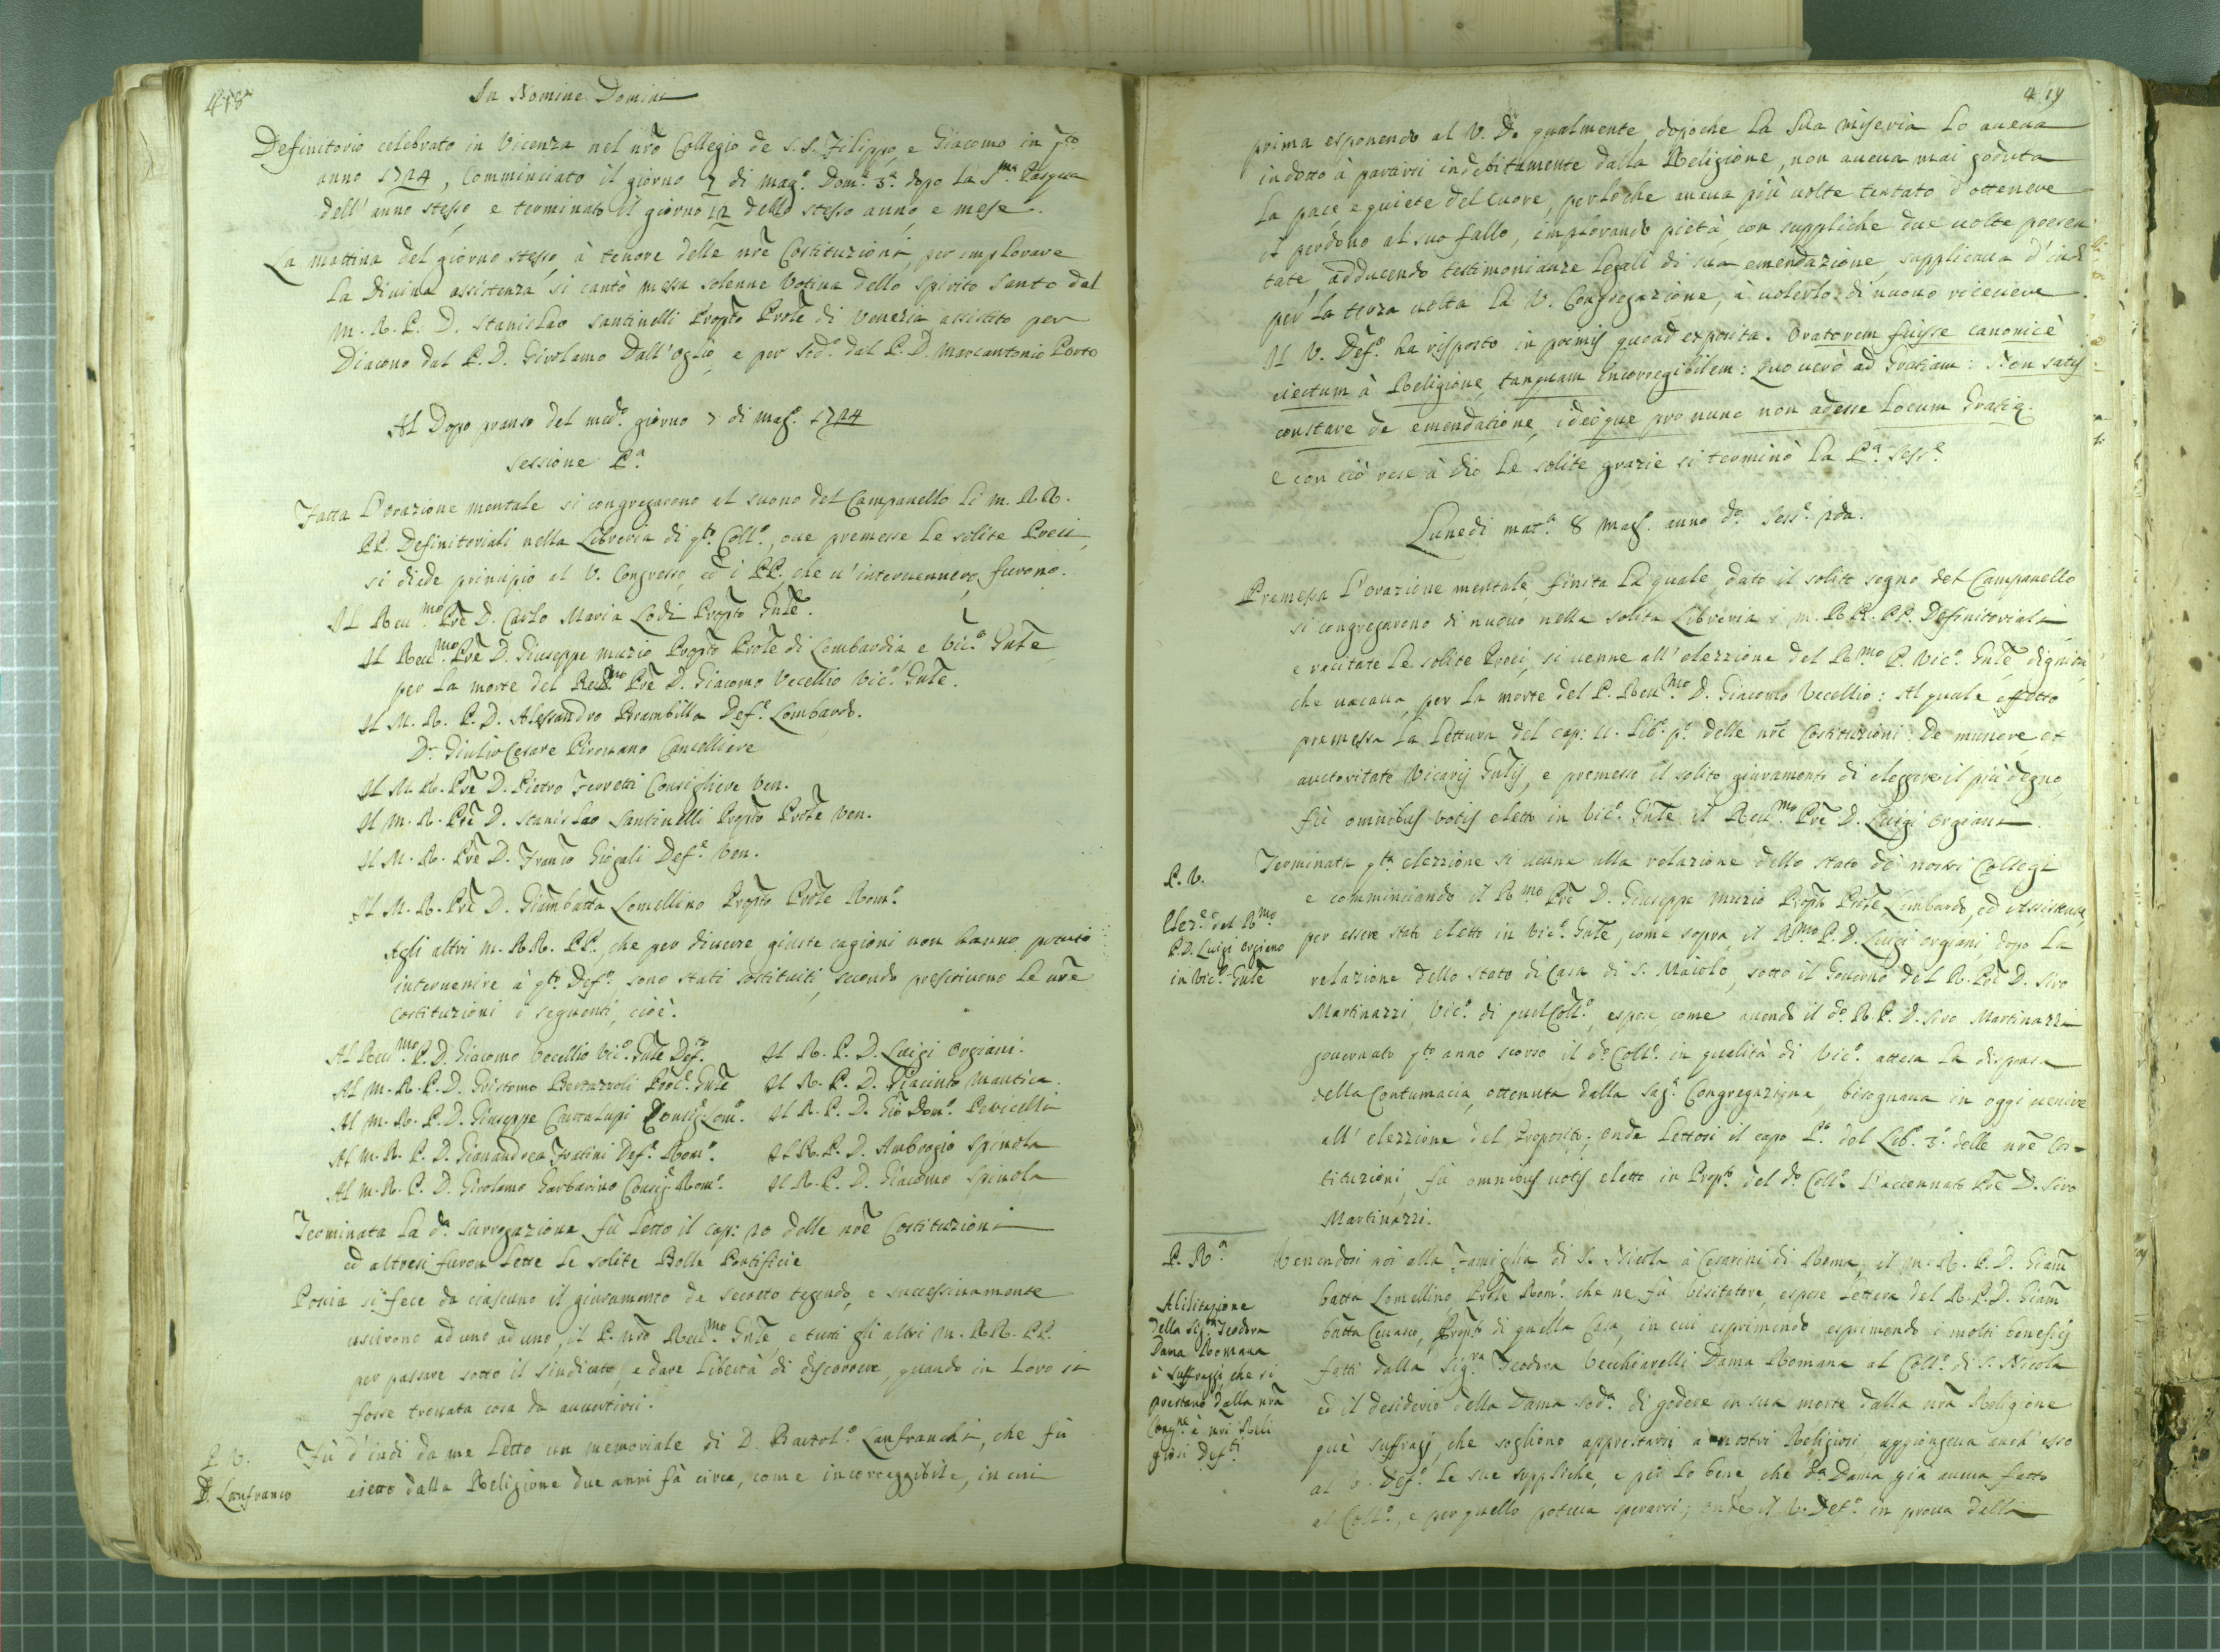 418
In Nomine Domini
Definitorio celebrato in Vicenza nel nrõ Collegio de S.S. Filippo, e Giacomo in q.to
anno 1724, comminciato il giorno 7 di Mag.o Dom.a 3.a dopo la S.ma Pasqua
dell'anno stesso, e terminato il giorno 12 dello stesso anno, e mese.
La mattina del giorno stesso, à tenore delle nrẽ Costituzioni, per implorare
la Divina assistenza, si cantò messa solenne votiva dello Spirito Santo dal
M. R. P. D. Stanislao Santinelli Propto Prole di Venezia assistito per
Diacono dal P. D. Girolamo Dall'Oglio, e per Sod.o dal P. D. Marcantonio Porto
Al Dopo pranso del med.o giorno 7 di Mag.o 1724
Sessione P.a
Fatta l'orazione mentale si congregarono al suono del Campanello li M. RR.
PP. Definitoriali nella Libreria di q.to Coll.o, ove premesse le solite Preci,
si diede principio al V. Congresso, ed i PP. che u'intervennero, furono.
Il Reu.mo Prẽ D. Carlo Maria Lodi Propto Gnle.
Il Reu.mo Prẽ D. Giuseppe Muzio Propto Prole di Lombardia, e Vic.o Gnle
per la morte del Reu.mo Prẽ D. Giacomo Vecellio Vic.o Gnle.
Il M. R. P. D. Alessandro Brambilla Def.e Lombardo.
D. Giulio Cesare Pirovano Cancelliere
Il M. R. Prẽ D. Pietro Ferretti Consigliere Ven.
Il M. R. Prẽ D. Stanislao Santinelli Propto Prole Ven.
Il M. R. Prẽ D. Franco Giogali Def.e Ven.
Il M. R. Prẽ D. Giambatta Lomellino Propto Prole Rom.o
Agli altri M. RR. PP. che per diverse giuste cagioni non hanno potuto
intervenire à q.to Def.o sono stati sostituiti, secondo prescrivono le nrẽ
Costituzioni i seguenti, cioè.
Al Reu.mo P. D. Giacomo Vecellio Vic.o Gnle Def.to Il R. P. D. Luigi Orgiani.
Al M. R. P. D. Gristomo Bertazzoli Proc.e Gnle Il R. P. D. Giacinto Mantica.
Al M. R. P. D. Giuseppe Cattalupi Consig.e Lom.o Il R. P. D. Gio Dom.o Pericelli
Al M. R. P. D. Gianandrea Fratini Def.e Rom.o Il R. P. D. Ambrogio Spinola
Al M. R. P. D. Girolamo Garbarino Consig.e Rom.o Il R. P. D. Giacomo Spinola
Terminata la d.a Surrogazione fù letto il cap: 20 delle nrẽ Costituzioni
ed altresi furon lette le solite Bolle Pontificie
Poscia si fece da ciascuno il giuramento de secreto tegendo, e successivamente
uscirono ad uno ad uno, il P. nrõ Reu.mo Gnle, e tutti gli altri M. RR. PP.
per passare sotto il sindicato, e dare libertà di discorrere, quando in loro si
fosse trovata cosa da avvertirsi.
P. V. Fù d'indi da me letto un memoriale di D. Bartol.o Lanfranchi, che fù
D. Lanfranco eietto dalla Religione due anni fà circa, come incorreggibile, in cui
419
prima esponendo al V. D.o qualmente, dopoche la sua miseria lo aueua
indotto à partirsi indebitamente dalla Religione, non aueua mai goduta
la pace, e quiete del cuore, perloche aueua più uolte tentato d'ottenere
il perdono al suo fallo, implorando pietà con suppliche due uolte presen
tate, adducendo testimonianze legali di sua emendazione, supplicaua d'indi
per la terza uolta la V. Congregazione, à uolerlo di nuouo riceuere.
Il V. Def.o ha risposto in primis quoad exposita. Oratorem fuisse canonicè
eiectum à Religione, tanquam incorregibilem: Quo uerò ad Gratiam: Non satis
constare de emendatione, ideòque pro nunc non adesse locum Gratiæ.
e con ciò rese à Dio le solite grazie si terminò la P.a Sess.e
Lunedi mat.a 8 Mag.o anno d.o Sess.e 2da.
Premessa l'orazione mentale, finita la quale, dato il solito segno del Campanello
si congregarono di nuouo nella solita Libreria i M. RR. PP. Definitoriali
e recitate le solite Preci, si uenne all'elezzione del R.mo P. Vic.o Gnle, dignità,
che uacaua per la morte del P. Reu.mo D. Giacomo Vecellio: Al quale effetto
premessa la lettura del cap: 11. Lib.o p.o delle nrẽ Costituzioni: De munere, et
auctoritate Vicarij Gnlis, e premesso il solito giuramento di eleggere il più degno
fù omnibus votis eletto in Vic.o Gnle il Reu.mo Prẽ D. Luigi Orgiani.
P. V. Terminata q.ta elezzione si uenne alla relazione dello stato de' nostri Collegi
e comminciando il R.mo Prẽ D. Giuseppe Muzio Propto Prole Lombardo, ed Assistente,
Elez.e del R.mo
P. D. Luigi Orgiano
in Vic.o Gnle
per essere stato eletto in Vic.o Gnle, come sopra, il R.mo P. D. Luigi Orgiani, dopo la
relazione dello stato di Casa di S. Maiolo, sotto il Gouerno del R. Prẽ D. Siro
Martinazzi, Vic.o di quel Coll.o, espose, come auendo il d.o R. P. D. Siro Martinazzi
gouernato q.to anno scorso il d.o Coll.o in qualità di Vic.o attesa la dispensa
della Contumacia, ottenuta dalla Sag.a Congregazione, bisognaua in oggi uenire
all'elezzione del Proposito; onde lettosi il capo P.o del Lib.o 3.o delle nrẽ Cos=
tituzioni, fù omnibus uotis eletto in Prop.to del d.o Coll.o l'accennato Prẽ D. Siro
Martinazzi.
P. R.a Venendosi poi alla Famiglia di S. Nicola à Cesarini di Roma, il M. R. P. D. Giam
batta Lomellino, Prole Rom.o che ne fù Visitatore, espose lettera del R. P. D. Giam
Abilitazione
della Sig.ra Teodora
Dama Romana
à Suffraggi, che si
prestano dalla nrã
Cong.ne à nri Reli
giosi Def.ti
batta Ceuasco, Propto di quella Casa, in cui esprimendo esprimendo i molti beneficij
fatti dalla Sig.ra Teodora Vecchiarelli Dama Romana al Coll.o di S. Nicola
ed il desiderio della Dama sod.a di godere in sua morte dalla nrã Religione
què suffragj, che sogliono apprestarsi à nostri Religiosi, aggiongeua anch'esso
al V. Def.o le sue suppliche, e per lo bene, che d.a Dama già aueua fatto
al Coll.o, e per quello poteua sperarsi; onde il V. Def.o in proua della